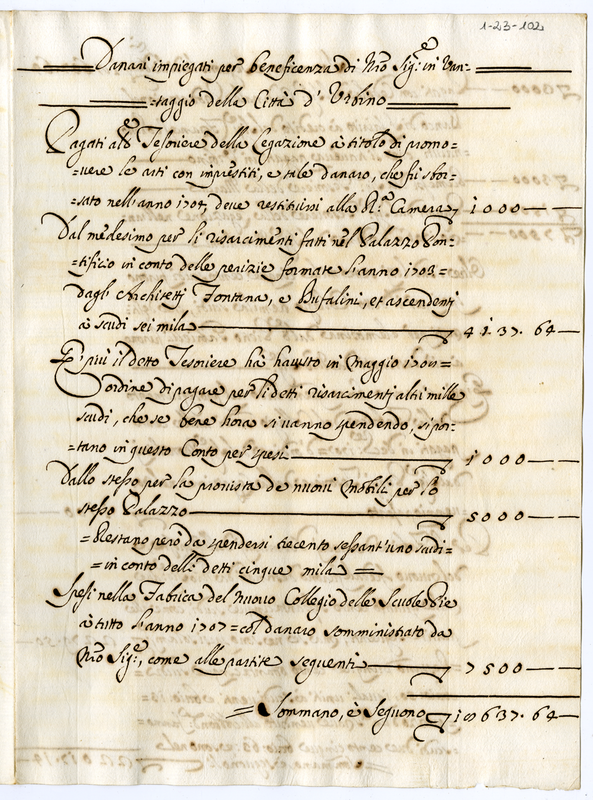 1-23-102
Danari impiegati per beneficenza di Nro Sig.re in Van-
-taggio della Città d'Urbino
Pagati al Tesoriere della Legazione à titolo di promo=
=vere le arti con imprestiti, e tale danaro, che fù sbor-
-sato nell'anno 1704, deve restituirsi alla R.a Camera 1000
Dal medesimo per li risarcimenti fatti nel Palazzo Pon-
-tificio in conto delle perizie formate l'anno 1703=
dagl'Architetti Fontana, e Bufalini, et ascendenti
à scudi sei mila 4137.64
E più il detto Tesoriere hà hauuto in Maggio
l'ordine di pagare per li detti risarcimenti altri mille
scudi, che se bene hora si vanno spendendo, si por-
-tano in questo Conto per spesi 1000
Dallo stesso per la provista de nuovi Mobili per lo
stesso Palazzo 5000
=Restano però da spendersi trecento sessant'uno scudi=
=in conto delli detti cinque mila=
Spesi nella Fabrica del nuovo Collegio delle Scuole Pie
à tutto l'anno 1707=col danaro somministrato da
Nro Sig.re, come alle partite seguenti 7500
=Sommano, e Seguono 18637.64